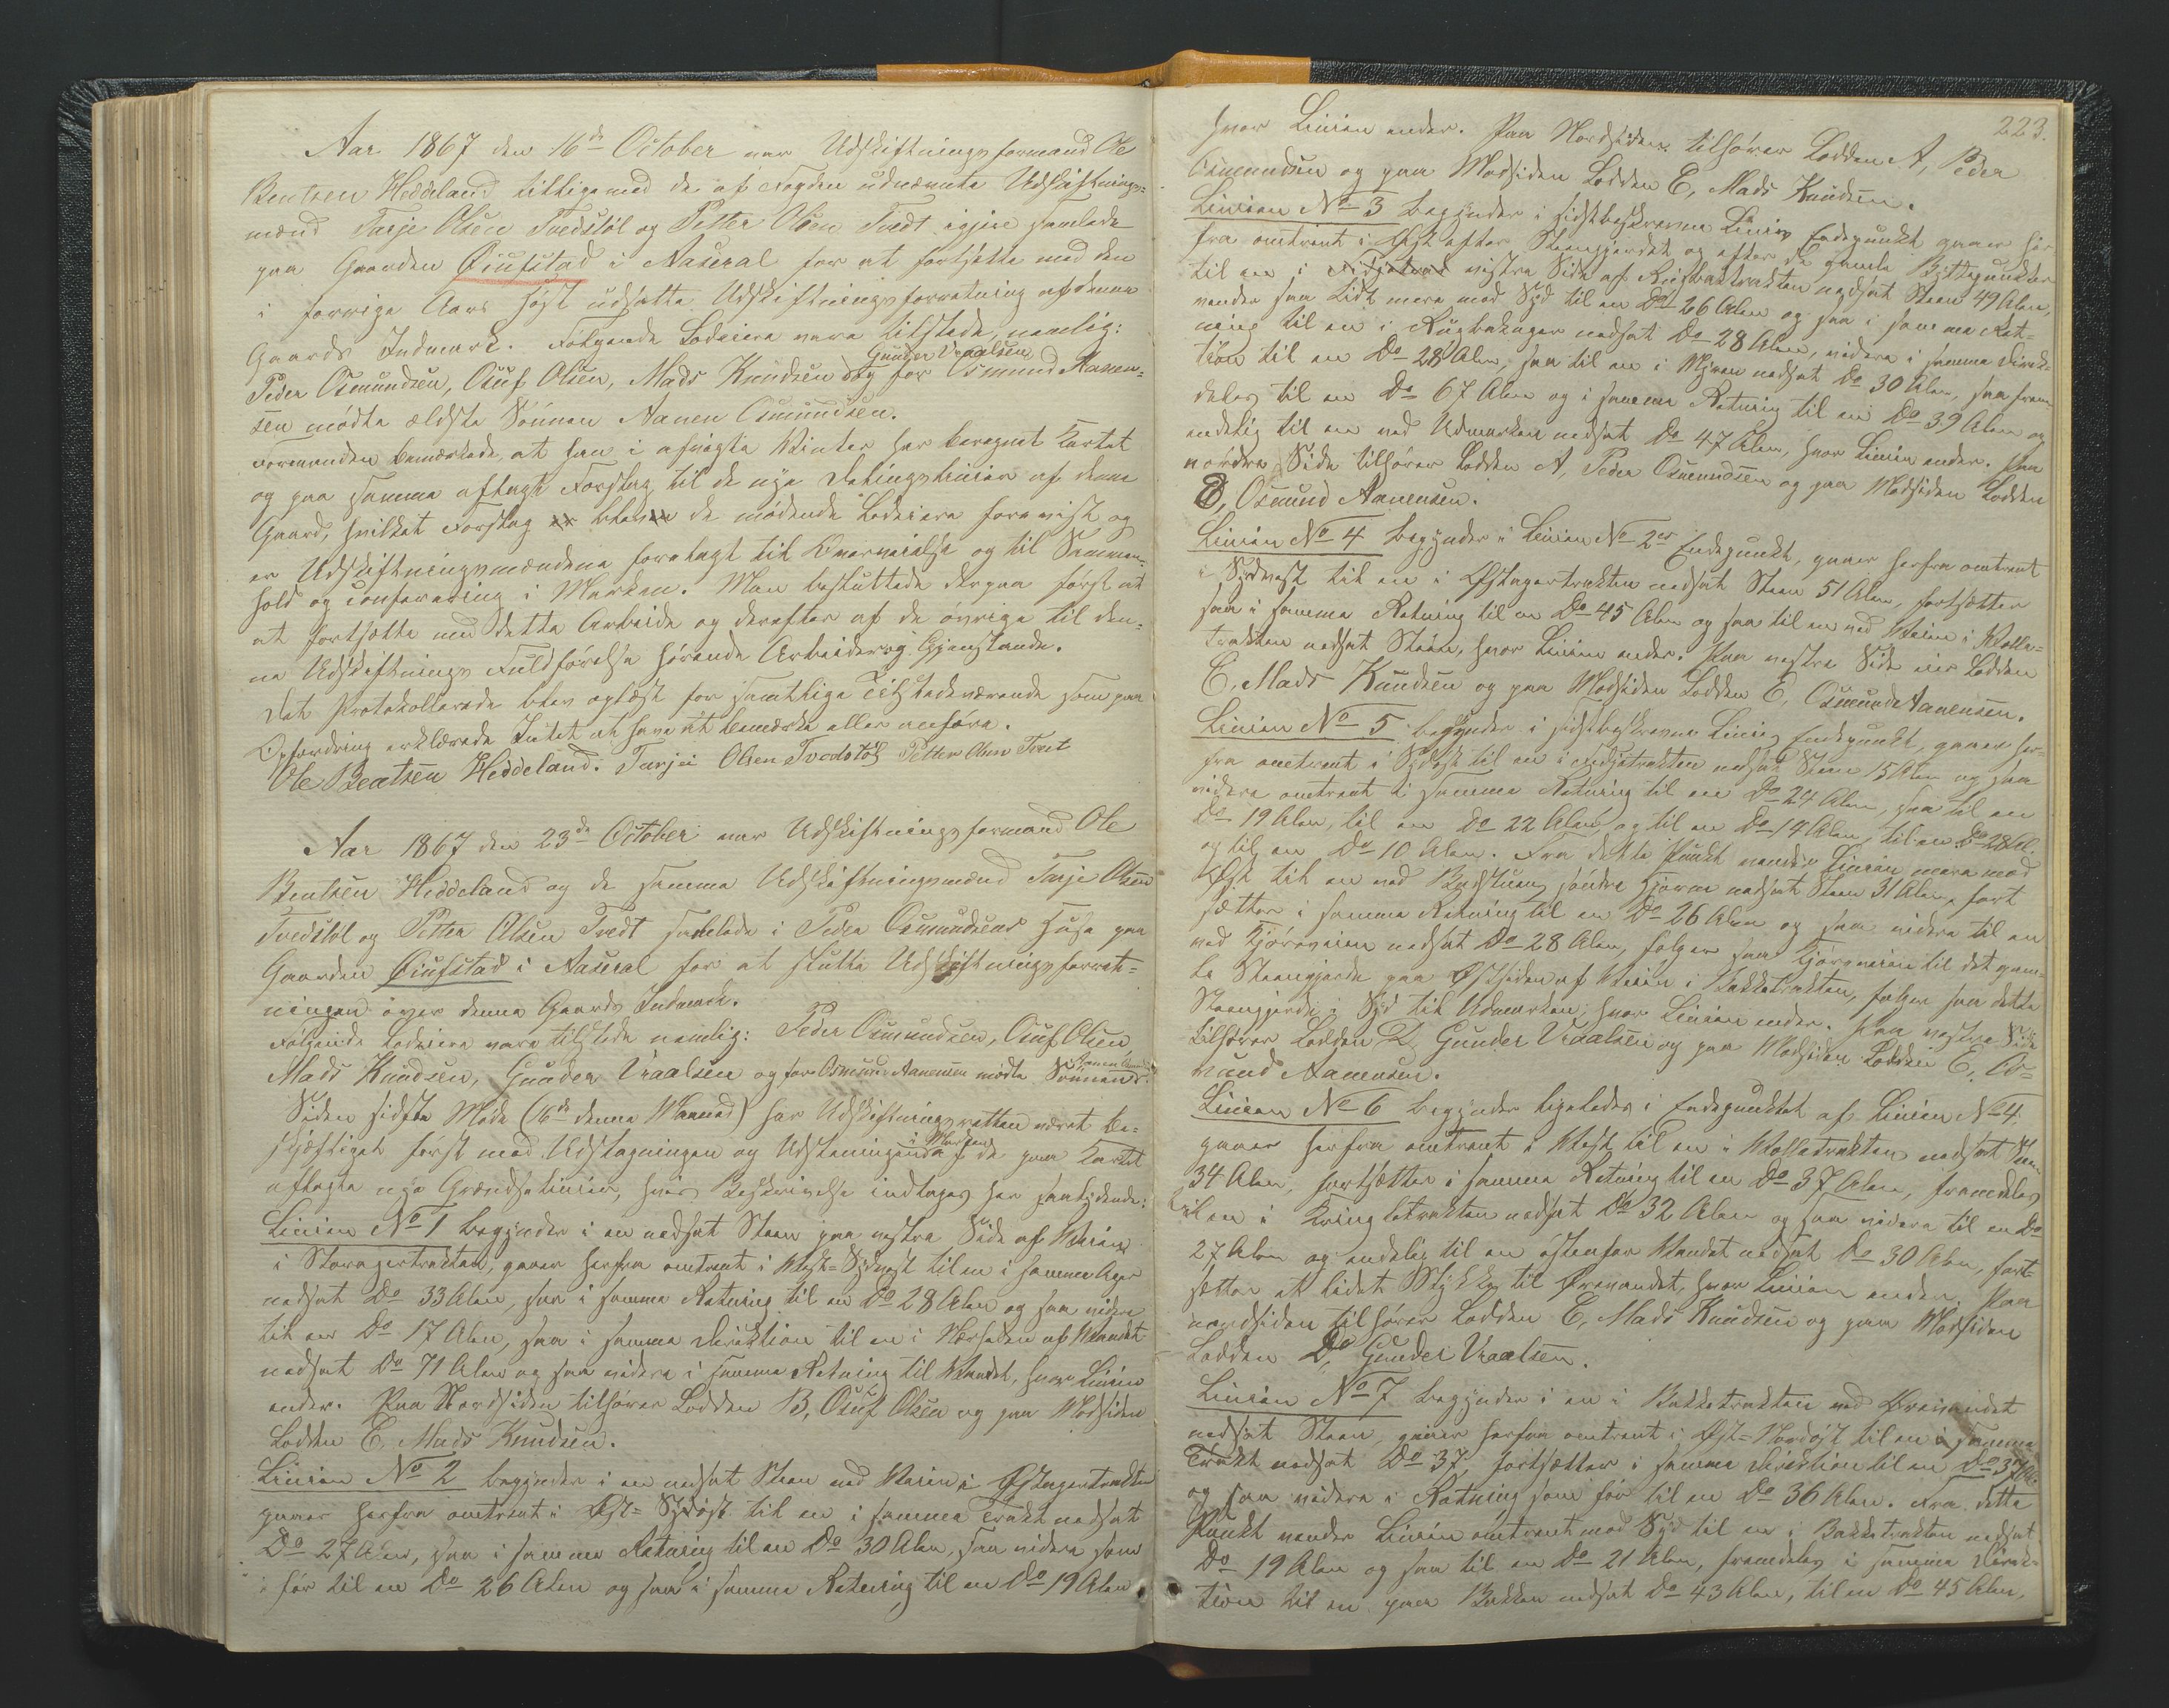 Aar 1867 den 16de October var Udskiftningsformand Ole
Bentsen Heddeland tilligemed de af Fogden udnævnte Udskiftnings-
mænd Tarje Olsen Tvedstöl og Petter Olsen Tvedt igjen samlede
paa Gaarden Ósufstad i Aaseral for at fortsætte med den
i forrige Aars Høst udsatte Udskiftningsforretning af denne
Gaards Indmark. Følgende Lodeiere vare tilstede, nemlig:
Gunder Vraalsen
Peder Osmundsen, Osuf Olsen, Mads Knudsen og for Osmund Aanen-
sen mødte ældste Sønnen Aanen Osmundsen.
Formanden bemærkede, at han i afvigte Vinter har beregnet Kartet
og paa samme aflagt Forslag til de nye Delingslinier af denne
Gaard, hvilket Forslag er bleven de mødende Lodeiere forevist og
er Udskiftningsmændene forelagt til Overveielse og til Sammen-
hold og conferering i Marken. Man besluttede derpaa først at
at fortsætte med dette Arbeide og derefter af de øvrige til den-
ne Udskiftnings Fuldførelse hørende Arbeider og Gjenstande.
Det Protokollerede blev oplæst for samtlige Tilstedeværende som paa
Opfordring erklærede Intet at have at bemærke eller anføre.
Ole Bentsen Heddeland. Tarjei Olsen Tvedstöl Petter Olsen Tvet
Aar 1867 den 23de October var Udskiftningsformand Ole
Bentsen Heddeland og de samme Udskiftningsmænd Tarje Olsen
Tvedstöl og Petter Olsen Tvedt samlede i Peder Osmundsens Huse paa
Gaarden Ósufstad i Aaseral for at slutte Udskiftningsforret-
ningen over denne Gaards Indmark.
Følgende Lodeiere vare tilstede nemlig: Peder Osmundsen, Osuf Olsen
Mads Knudsen, Gunder Vraalsen og for Osmund Aanensen mødte Sønnen
Siden sidste Møde (16de denne Maaned) har Udskiftningsretten været be-
skjæftiget først med Udstagningen og Udsteningen i Marken af de paa Kartet
aflagte nye Grændselinier, hvis Beskrivelse indtages her saalydende:
Linien No 1 begynder i en nedsat Steen paa vestre Side af Veien
i Storagertrakten, gaaer herfra omtrent i Vest-Sydvest til en i samme Ager
nedsat Do 33 Alen, saa i samme Retning til en Do 28 Alen og saa videre
til en Do 17 Alen, saa i samme Direktion til en i Nærheden af Vandet
nedsat Do 71 Alen og saa videre i samme Retning til Vandet, hvor Linien
ender. Paa Nordsiden tilhører Lodden B, Osuf Olsen og paa Modsiden
Lodden C, Mads Knudsen.
Linien No 2 begynder i en nedsat Steen ved Veien i Østagertrakten
gaaer herfra omtrent i Øst-Sydøst til en i samme Trakt nedsat
Do 27 Alen, saa i samme Retning til en Do 30 Alen, saa videre som
før til en Do 26 Alen og saa i samme Retning til en Do 19 Alen
223.
hvor Linien ender. Paa Nordsiden tilhører Lodden A, Peder
Osmundsen og paa Modsiden Lodden C, Mads Knudsen.
Linien No 3 begynder i sidstbeskrevne Linies Endepunkt gaaer her
fra omtrent i Øst efter Steengjerdet og efter de gamle Byttepunkter
til en i vestre Side af Rugbaktrakten nedsat Steen 49 Alen,
vender saa lidt mere mod Syd til en Do 26 Alen og saa i samme Ret-
ning til en i Rugbakager nedsat Do 28 Alen, videre i samme Direk-
tion til en Do 28 Alen, saa til en i Myren nedsat Do 30 Alen, saa frem-
deles til en Do 67 Alen og i samme Retning til en Do 39 Alen og
endelig til en ved Udmarken nedsat Do 47 Alen, hvor Linien ender. Paa
nordre Side tilhører Lodden A, Peder Osmundsen og paa Modsiden Lodden
Osmund Aanensen.
Linien No 4 begynder i Linien No 2es Endepunkt, gaaer herfra omtrent
i Sydvest til en i Østagertrakten nedsat Steen 51 Alen, fortsætter
saa i samme Retning til en Do 45 Alen og saa til en ved Veien i Volle-
trakten nedsat Steen, hvor Linien ender. Paa vestre Side eier Lodden
C, Mads Knudsen og paa Modsiden Lodden E, Osmund Aanensen.
Linien No 5 begynder i sidstbeskrevne Linies Endepunkt, gaaer her-
fra omtrent i Sydøst til en i nedsat Steen 15 Alen og saa
videre omtrent i samme Retning til en Do 24 Alen, saa til en
Do 19 Alen, til en Do 22 Alen og til en Do 14 Alen, til en Do 28 Al.
og til en Do 10 Alen. Fra dette Punkt vender Linien mere mod
Øst til en ved Badstuens søndre Hjørne nedsat Steen 31 Alen, fort
sætter i samme Retning til en Do 26 Alen og saa videre til en
ved Kjøreveien nedsat Do 28 Alen, følger saa Kjøreveien til det gam-
le Steengjerde paa Østsiden af Veien i Bakketrakten, følger saa dette
Steengjerde i Syd til Udmarken, hvor Linien ender. Paa vestre Side
tilhører Lodden D, Gunder Vraalsen og paa Modsiden Lodden E, Os-
mund Aanensen.
Linien No 6 begynder ligeledes i Endepunktet af Linien No 4.
gaaer herfra omtrent i Vest til en i Volletrakten nedsat Steen
34 Alen, fortsætter i samme Retning til en Do 37 Alen, fremdeles
til en i Kringletrakten nedsat Do 32 Alen og saa videre til en Do
27 Alen og endelig til en østenfor Vandet nedsat Do 30 Alen, fort-
sætter et lidet Stykke til Ørevandet, hvor Linien ender. Paa
nordsiden tilhører Lodden C, Mads Knudsen og paa Modsiden
Lodden D, Gunder Vraalsen.
Linien No 7 begynder i en i Bakketrakten ved Ørevandet
nedsat Steen, gaaer herfra omtrent i Øst-Nordøst til en i samme
Trakt nedsat Do 37, fortsætter i samme Direktion til en Do 37 Al.
og saa videre i Retning som før til en Do 36 Alen. Fra dette
Punkt vender Linien omtrent mod Syd til en i Bakketrakten nedsat
Do 19 Alen og saa til en Do 21 Alen, fremdeles i samme Direk-
tion til en paa Bakken nedsat Do 43 Alen, til en Do 45 Alen,